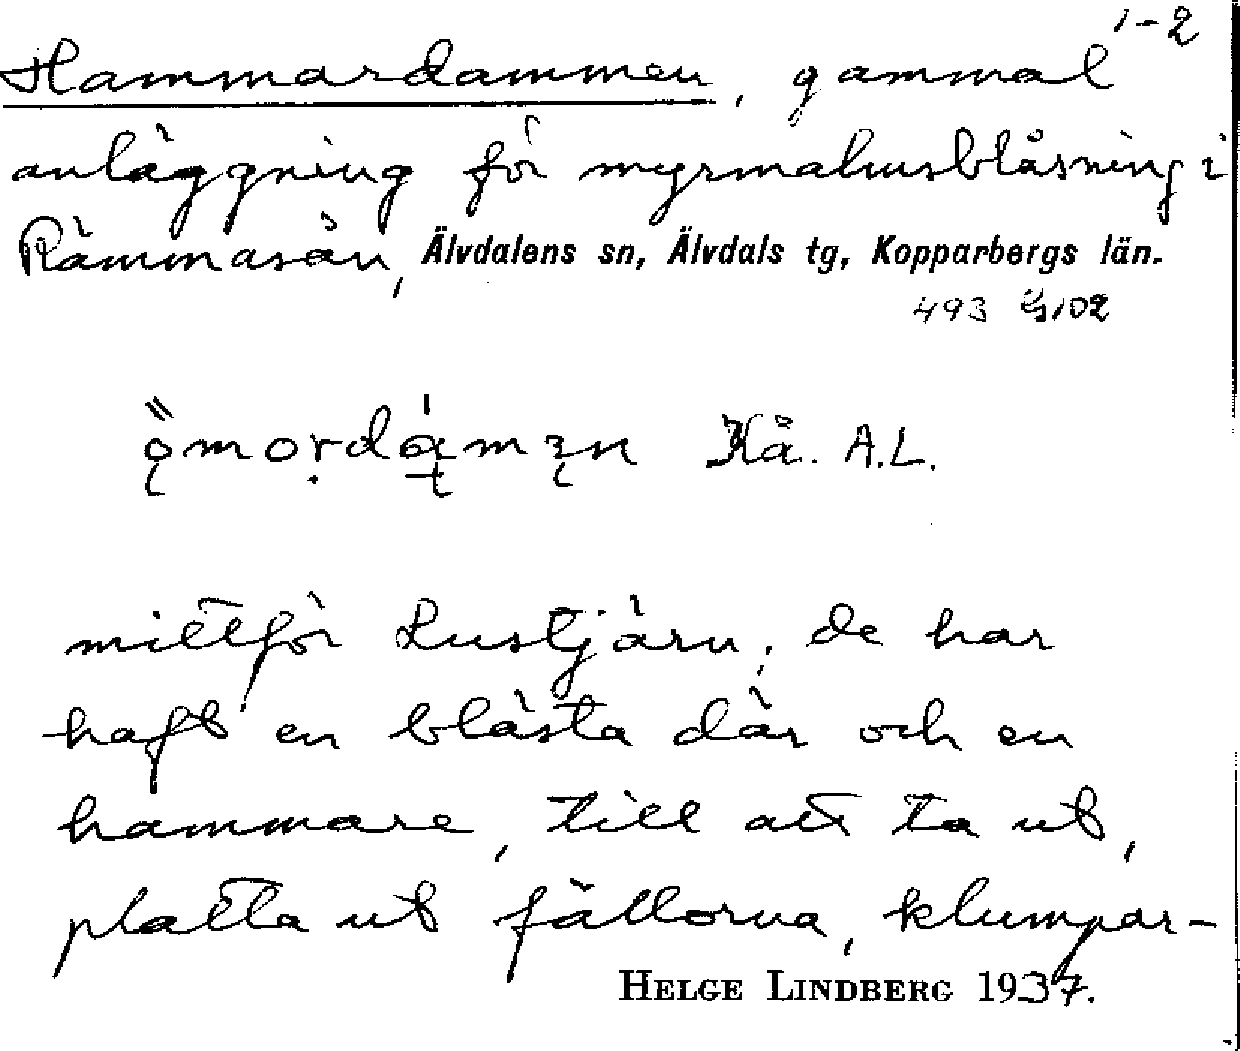 1-2
Hammardammen, gammal
anläggning för myrmalmsblåsning i
Rämmasån, Älvdalens sn, Älvdals tg, Kopparbergs län.
493
Kå. A.L.
mittför Lustjärn; de har
haft en blästa där och en
hammare, till att ta ut,
platta ut fällorna, klumpar-
HELGE LINDBERG 1937.